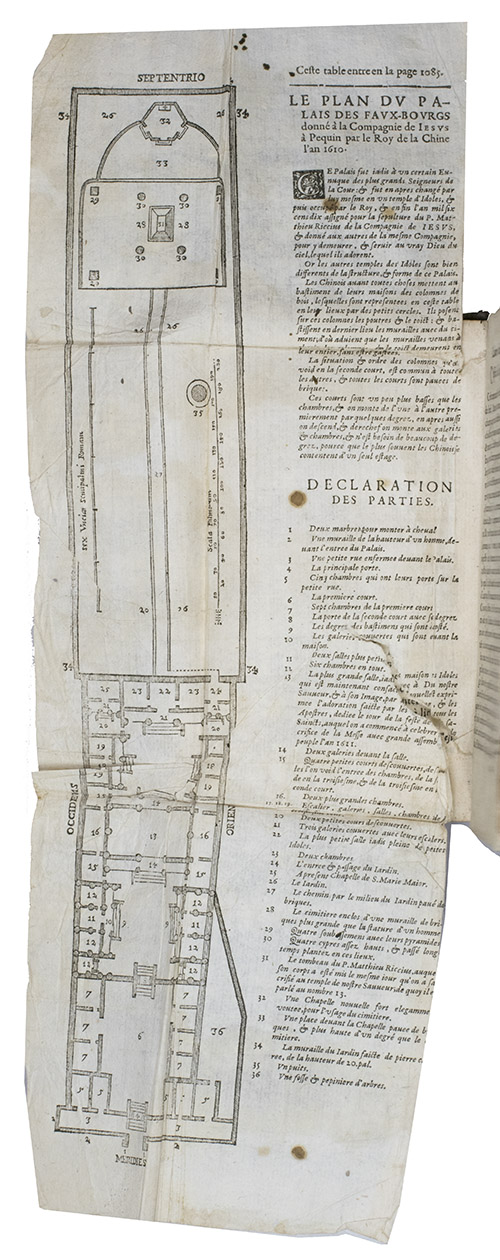 Ceste table entre en la page 1085.
LE PLAN DV PA-
LAIS DES FAVX-BOVRGS
donné à la Compagnie de IESVS
à Pequin par le Roy de la Chine
l'an 1610.
CE Palais fut iadis à vn certain Eu-
nuque des plus grands Seigneurs de
la Cour, & fut en apres changé par
luy mesme en vn temple d'Idoles, &
puis occupé par le Roy, & enfin l'an mil six
cens dix assigné pour la sepulture du P. Mat-
thieu Riccius de la Compagnie de IESVS,
& donné aux autres de la mesme Compagnie,
pour y demeurer, & seruir au vray Dieu du
ciel, lequel ils adorent.
Or les autres temples des Idoles sont bien
differents de la structure, & forme de ce Palais.
Les Chinois auant toutes choses mettent au
bastiment de leurs maisons des colomnes de
bois, lesquelles sont representees en ceste table
en leur lieux par des petits cercles. Ils posent
sur ces colomnes les poutres & le toict: & ba-
stissent en dernier lieu les murailles auec du ci-
ment, d'où aduient que les murailles venans à
leur entier, sans estre gastees.
La situation & ordre des colomnes
void en la seconde court, est commun à toutes
les autres, & toutes les courts sont pauees de
briques.
Ces courts sont vn peu plus basses que les
chambres, & on monte de l'vne à l'autre pre-
mierement par quelques degrez, en apres aussi
on descend, & derechef on monte aux galeries
& chambres, & n'est besoin de beaucoup de de-
grez, pource que le plus souuent les Chinois se
contentent d'vn seul estage.
DECLARATION
DES PARTIES.
1 Deux marbres pour monter à cheual
2 Vne muraille de la hauteur d'vn homme, de-
uant l'entree du Palais.
3 Vne petite rue enfermee deuant le Palais.
4 La principale porte.
5 Cinq chambres qui ont leurs porte sur la
petite rue.
6 La premiere court.
7 Sept chambres de la premiere court
8 La porte de la seconde court auec se degrez
9 Les degrez des bastimens qui sont costé.
10 Les galeries couuertes qui sont euant la
maison.
11 Deux salles plus petit
12 Six chambres en tout.
13 La plus grande salle, iadis maison Idoles
qui est maintenant consac à Dn nostre
Sauueur, & à son Image, par laquelle expri-
mee l'adoration faicte par & les
Apostres, dediee le iour de la feste de
Saincts, auquel on a commencé à celebrer
crifice de la Messe auec grande assemb
peuple l'an 1611.
14 Deux galeries deuant la salle.
15 Quatre petites courts descouuertes, de
les l'on voit l'entree des chambres, de la
de en la troisiesme, & de la troisiesme en
conde court.
16 Deux plus grandes chambres.
17.18.19. Escalier, galeries, salles, chambres
20 Deux petites cours descouuertes.
21 Trois galeries couuertes auec leurs escaliers.
22 La plus petite salle iadis pleine de petites
Idoles.
23 Deux chambres
24 L'entree & passage du Iardin.
25 A present Chapelle de S. Marie Maior.
26 Le Iardin.
27 Le chemin par le milieu du Iardin paué de
briques.
28 Le cimitiere enclos d'vne muraille de bri-
ques plus grande que la stature d'vn homme
29 Quatre soubassemens auec leurs pyramides
30 Quatre cypres assez hauts, & passé long
temps plantez en ces lieux.
31 Le tombeau du P. Matthieu Riccius, auque
son corps a esté mis le mesme iour qu'on a sa
crifié au temple de nostre Sauueur, de quoy il e
parlé au nombre 13.
32 Vne Chapelle nouuelle fort elegamme
voutee, pour l'vsage du cimitiere.
33 Vne place deuant la Chapelle pauee de b
ques, & plus haute d'vn degré que le
mitiere.
34 La muraille du Iardin faicte de pierre e
ree, de la hauteur de 20. pal.
35 Vn puits.
36 Vne fosse & pepiniere d'arbres.
SEPTENTRIO
OCCIDENS
ORIEN
MERIDIES
Scala Palmorum